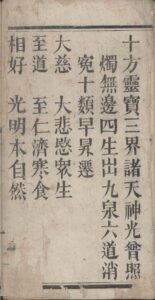 十方靈寶三界諸天神光普照
燭無邊四生出九泉六道消
寃十類早昇遷
大慈　大悲愍衆生
至道　至仁濟寒食
相好　光明本自然